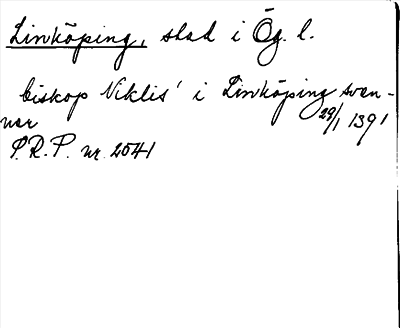 Linköping, stad i Ög. l.
biskop Niklis' i Linköping sven-
nar 29/1 1391
S.R.P. nr 2541